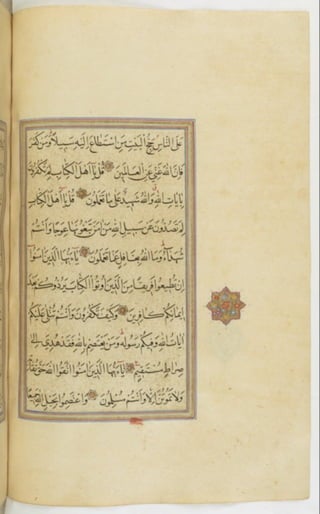 عَلَى النَّاسِ حِجُّ الْبَيْتِ مَنِ اسْتَطَاعَ إِلَيْهِ سَبِيلًا وَمَنْ كَفَرَ
فَإِنَّ اللَّهَ غَنِيٌّ عَنِ الْعَالَمِينَ قُلْ يَا أَهْلَ الْكِتَابِ لِمَ تَكْفُرُونَ
بِآيَاتِ اللَّهِ وَاللَّهُ شَهِيدٌ عَلَى مَا تَعْمَلُونَ قُلْ يَا أَهْلَ الْكِتَابِ
لِمَ تَصُدُّونَ عَنْ سَبِيلِ اللَّهِ مَنْ آمَنَ تَبْغُونَهَا عِوَجًا وَأَنْتُمْ
شُهَدَاءُ وَمَا اللَّهُ بِغَافِلٍ عَمَّا تَعْمَلُونَ يَا أَيُّهَا الَّذِينَ آمَنُوا
إِنْ تُطِيعُوا فَرِيقًا مِنَ الَّذِينَ أُوتُوا الْكِتَابَ يَرُدُّوكُمْ بَعْدَ
إِيمَانِكُمْ كَافِرِينَ وَكَيْفَ تَكْفُرُونَ وَأَنْتُمْ تُتْلَى عَلَيْكُمْ
آيَاتُ اللَّهِ وَفِيكُمْ رَسُولُهُ وَمَنْ يَعْتَصِمْ بِاللَّهِ فَقَدْ هُدِيَ إِلَى
صِرَاطٍ مُسْتَقِيمٍ يَا أَيُّهَا الَّذِينَ آمَنُوا اتَّقُوا اللَّهَ حَقَّ تُقَاتِهِ
وَلَا تَمُوتُنَّ إِلَّا وَأَنْتُمْ مُسْلِمُونَ وَاعْتَصِمُوا بِحَبْلِ اللَّهِ جَمِيعًا